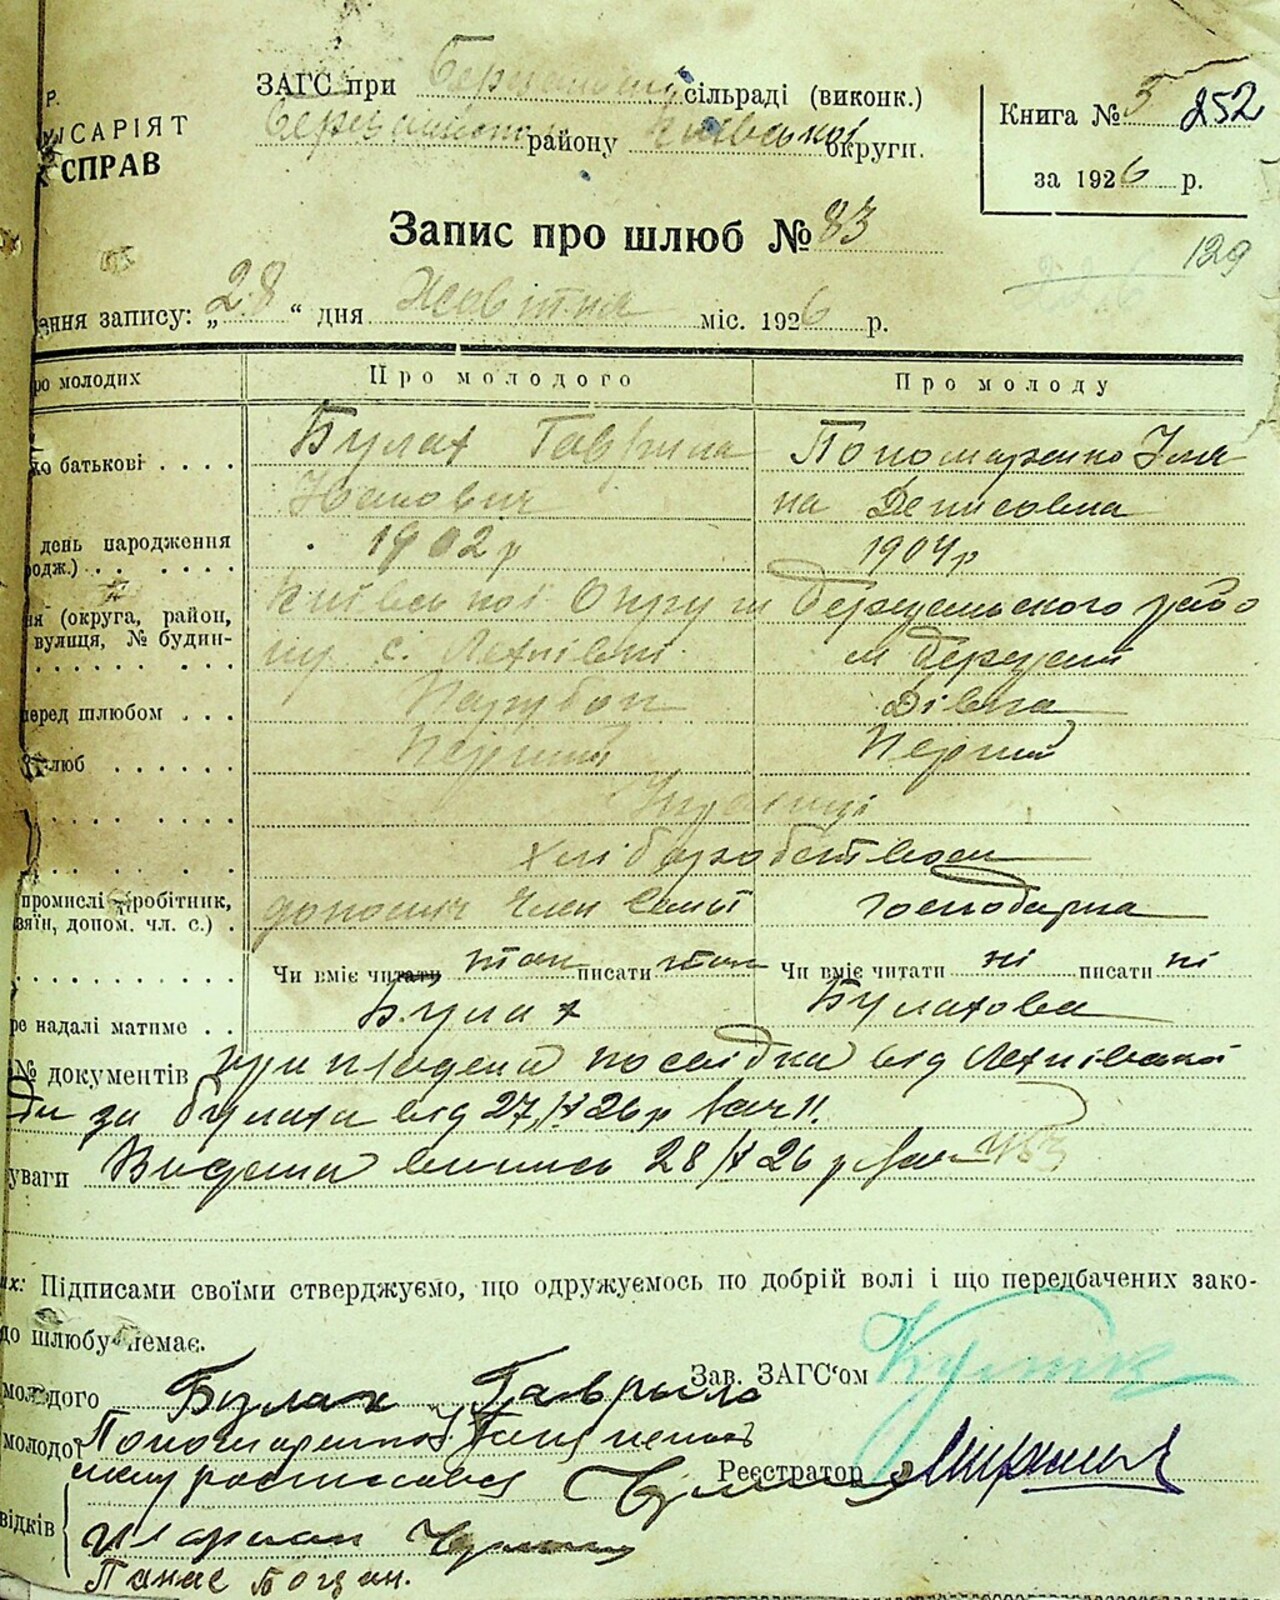 ЗАГС при сільраді (виконк.)
району Київської округи.
Книга № 5 252
за 1926 р.
Р.
ИСАРІЯТ
СПРАВ
Запис про шлюб № 83
129
ення запису: „28“ дня Жовтня міс. 1926 р.
ро молодих Про молодого Про молоду
по батькові . . . . Булах Гаврила Пономаренко Уля
Іванович на Денисовна
день народження 1902 р 1904 р
родж.) . .
ня (округа, район, Київської Округи Березанського райо
вулиця, № будин-
ну с. Лехнівки м Березані
перед шлюбом . . . Парубок Дівка
шлюб . . . . . . Перший Перший
Українці
Хліборобством
промислі робітник,
зяїн, допом. чл. с.) . допоміж Член Семї Господарка
Чи вміє читати так писати так Чи вміє читати ні писати ні
ре надалі матиме . . Булах Булахова
№ документів посвідка від Лехнівської
ди за Булаха від 27/X 26р
уваги Видана випись 28/X 26 р
их: Підписами своїми стверджуємо, що одружуємось по добрій волі і що передбачених зако-
до шлюбу немає.
Зав. ЗАГС‘ом
молодого Булах Гаврыло
молодої Пономаренко
росписався
Реєстратор
відків
Панас Богдан.